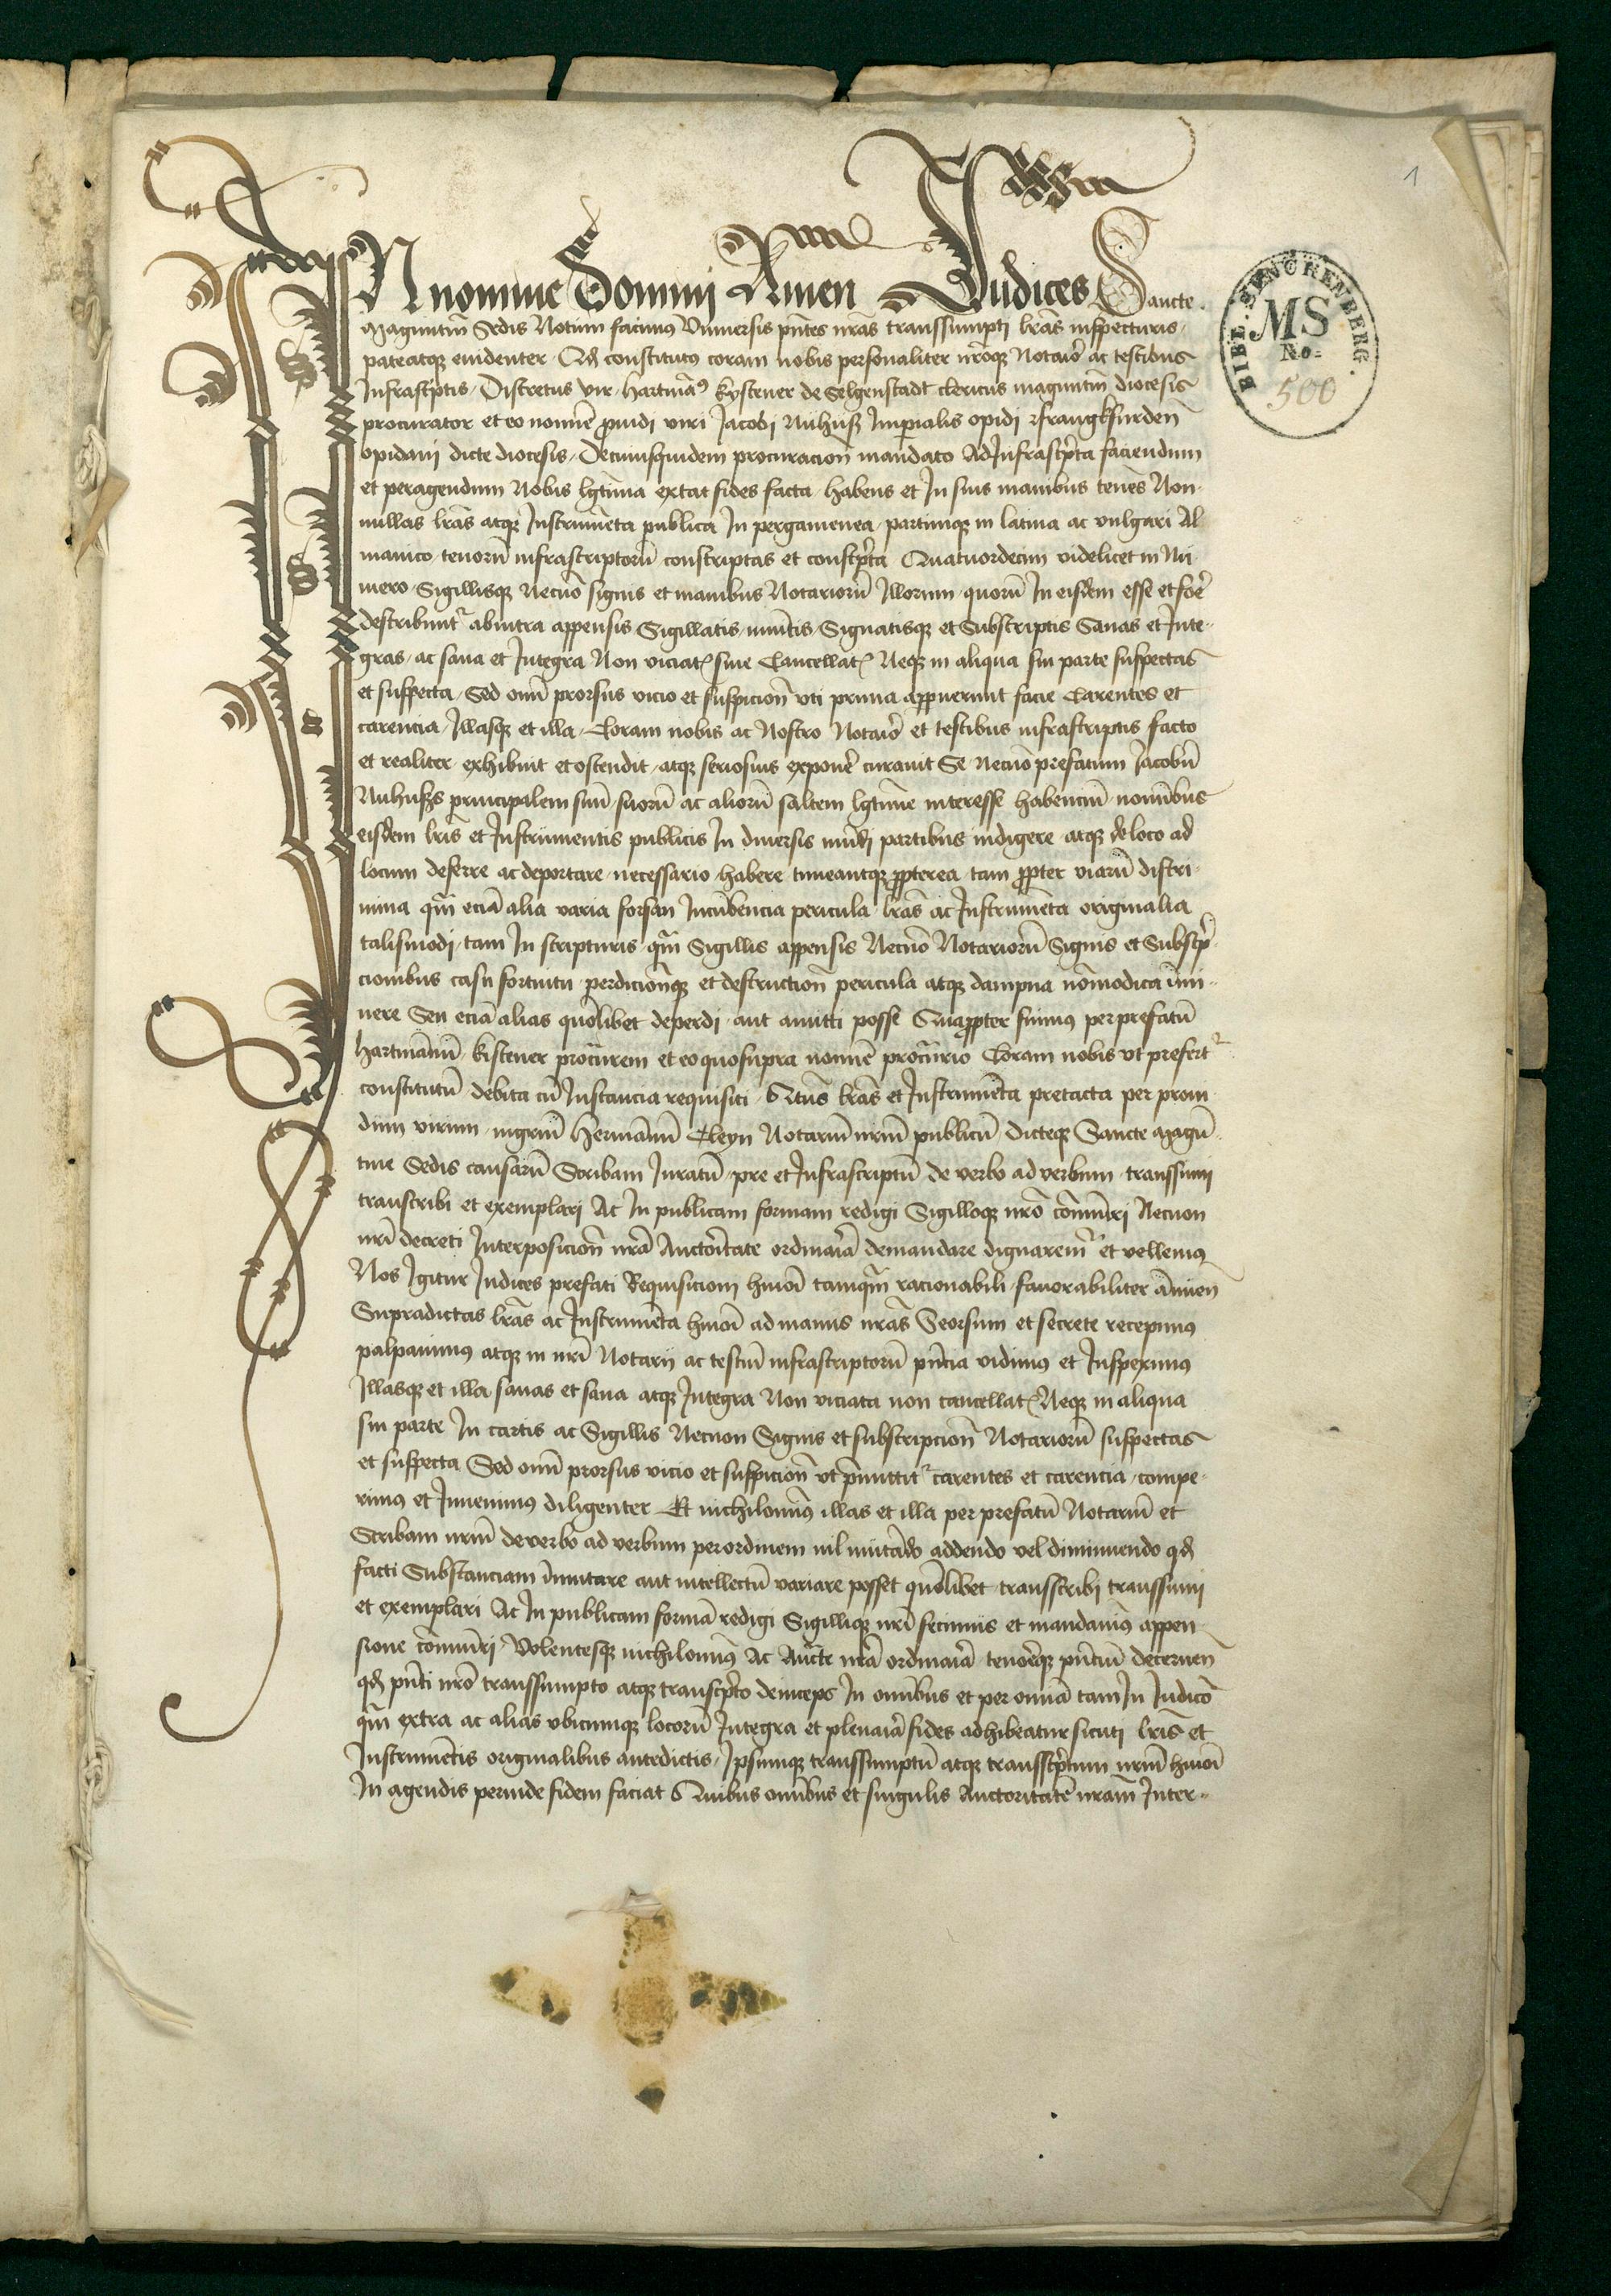 1
IN nomine Domini Amen Judices Sancte
Magūntiñ Sedis Notum facimus Vniuersis p̄ntes nr̄as transsumpti lr̄as inspecturis,
pateatqꝫ euidenter. Qđ constitutus coram nobis personaliter nr̄oqꝫ Notaīo ac testibus
Infrasc̄ptis, Discretus vir, hartmāꝰ kystener de Selgenstadt clericus maguntiñ diocesis
procurator et eo nomīe ꝓuidi viri Jacobi Nuhuß Imperialis opidi ffrangkfurdeñ
opidani dicte diocesis, De cuiusquidem procuracioñ mandato Ad Infrascr̄pta faciendum
et peragendum Nobis lgt̄ima extat fides facta, habens et In suis manibus tenēs Non-
nullas lr̄as atqꝫ Instrumēta publica In pergamenea, partimqꝫ in latina ac vulgari Al
manico, tenorū infrascriptorū conscriptas et conscr̄pta Quatuordecim videlicet in Nu
mero, Sigillisqꝫ Necnō signis et manibus Notariorū Illorum, quorū In eisdem esse et fore
describunt᷑ abintra appensis Sigillatis, munitis, Signatisqꝫ et Subscriptis Sanas et Inte-
gras, ac sana et Integra Non viciat᷑ siue Cancellat᷑ Neqꝫ in aliqua sui parte suspectas
et suspecta, Sed omī prorsus vicio et suspicioñ vti prima appuerunt facie Carentes et
carencia, Illasqꝫ et illa, Coram nobis ac Nostro Notaīo et testibus infrascriptis facto
et realiter exhibuit et ostendit, atqꝫ seriosius exponēr curauit Se necnō prefatum Jacobū
Nuhußs principalem suū, suorū ac aliorū saltem lgtīme interesse habenciū, nominibus
eisdem lr̄is et Instrumentis publicis In diuersis mūdi partibus indigere atqꝫ de loco ad
locum deferre ac deportare, necessario habere timeantqꝫ ꝓpterea, tam ꝓpter viarū discri-
mina qm̄ eciā alia varia forsan Incūbencia pericula, lr̄as ac Instrumēta originalia
talismodi, tam In scripturis qm̄ Sigillis appensis Necnō Notariorū Signis et Subscrp̄
cionibus casu fortuitu, perdicionisqꝫ et destructioñ pericula atqꝫ dampna nō modica īmi-
nere Seu eciā alias quōlibet deperdi, aut amitti posse Quaꝓpter fuimꝰ per prefatū
hartmānū, kistener procūrem et eo quosupra nomīe procūrio Coram nobis vt prefert᷑
constitutū debita cū Instancia requisiti, Qtus lr̄as et Instrumēta pretacta per proui
dum virum, mgr̄m Hermānū Cleyn Notariū nr̄m publicū dicteqꝫ Sancte Magū
tine Sedis causarū Scribam Juratū, pre et Infrascriptū de verbo ad verbum transsumi
transcribi et exemplari Ac In publicam formam redigi Sigilloqꝫ nr̄o cōmūiri Necnon
nr̄i decreti Interposicioñ nr̄a Auctoritate ordinaīa demandare dignarem᷑ et vellemꝰ
Nos Igitur Judices prefati Requisicioni hmōi tamqm̄ racionabili, fauorabiliter ānueñ
Supradictas lr̄as ac Instrumēta hmōi ad manus nr̄as Seorsum et secrete recepimus
palpauimus atqꝫ in nr̄i Notarij ac testiū infrascriptorū pn̄cia vidimus et Inspeximus
Illasqꝫ et illa sanas et sana atqꝫ Integra Non viciata non cancellat᷑ Neqꝫ in aliqua
sui parte In cartis ac Sigillis Necnon Signis et subscripcioñ Notariorū suspectas
et suspecta Sed omī prorsus vicio et suspicioñ vt p̄mittit᷑ carentes et carencia, compe-
rimus et Inuenimus diligenter Et nichilominꝰ illas et illa per prefatū Notariū et
Scribam nr̄m de verbo ad verbum per ordinem nil mutādo addendo vel diminuendo qđ
facti Substanciam īmutare aut intellectū variare posset quōlibet transscribi transsumi
et exemplari Ac In publicam formā redigi Sigilliqꝫ nr̄i fecimus et mandauimꝰ appen
sione cōmūiri, Volentesqꝫ nichilominꝰ Ac Auc̄te nr̄a ordinaīa, tenorēqꝫ pn̄ciū decerneñ
qđ pn̄ti nr̄o transsumpto atqꝫ transcr̄pto deinceps In omībus et per omīa tam In Judicō
qm̄ extra ac alias vbicumqꝫ locorū Integra et plenaīa fides adhibeatur sicuti lr̄is et
Instrumētis originalibus antedictis, Ipsumqꝫ transsumptū atqꝫ transscr̄ptum nr̄m hmōi
In agendis perinde fidem faciat Quibus omībus et singulis Auctoritatē nr̄am Inter-
BIBL. SENCKENBERG.
MS
No.
500